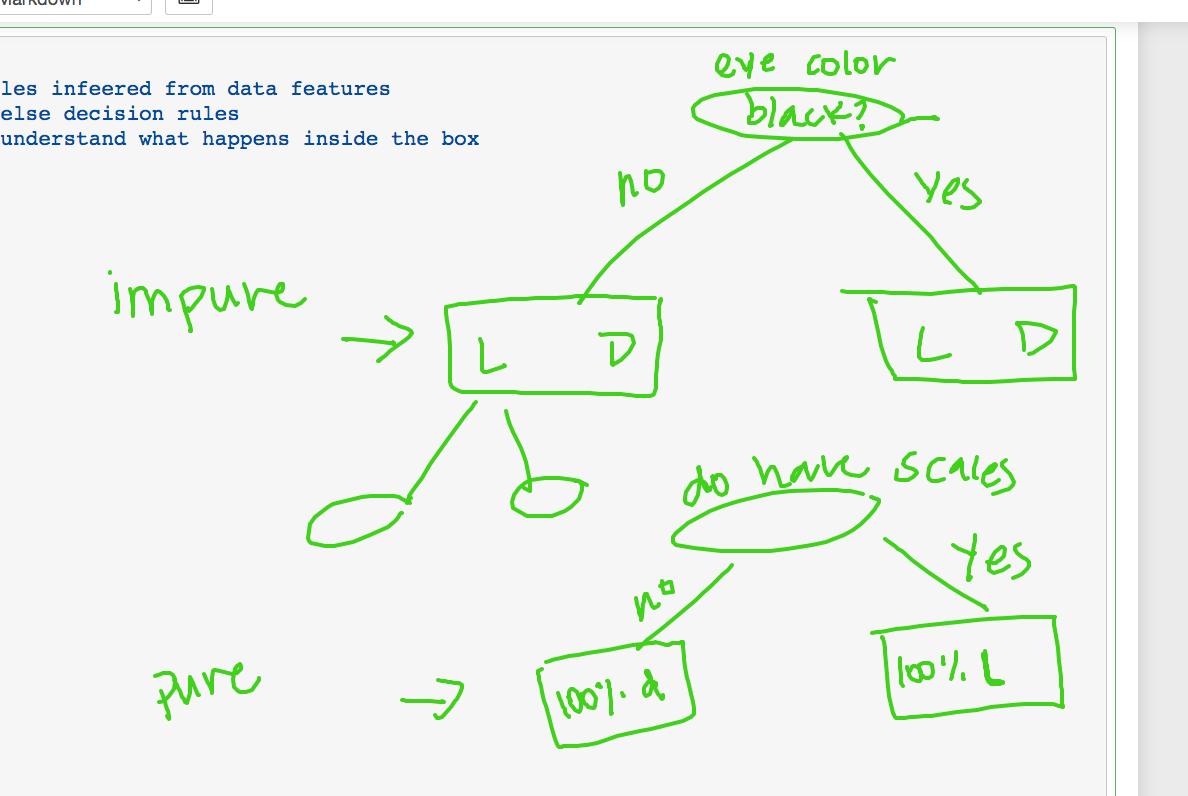 Markdown
les infeered from data features
else decision rules
understand what happens inside the box
eye color
black?
no
yes
impure
L D
L D
do have scales
no
Yes
pure
100% d
100% L